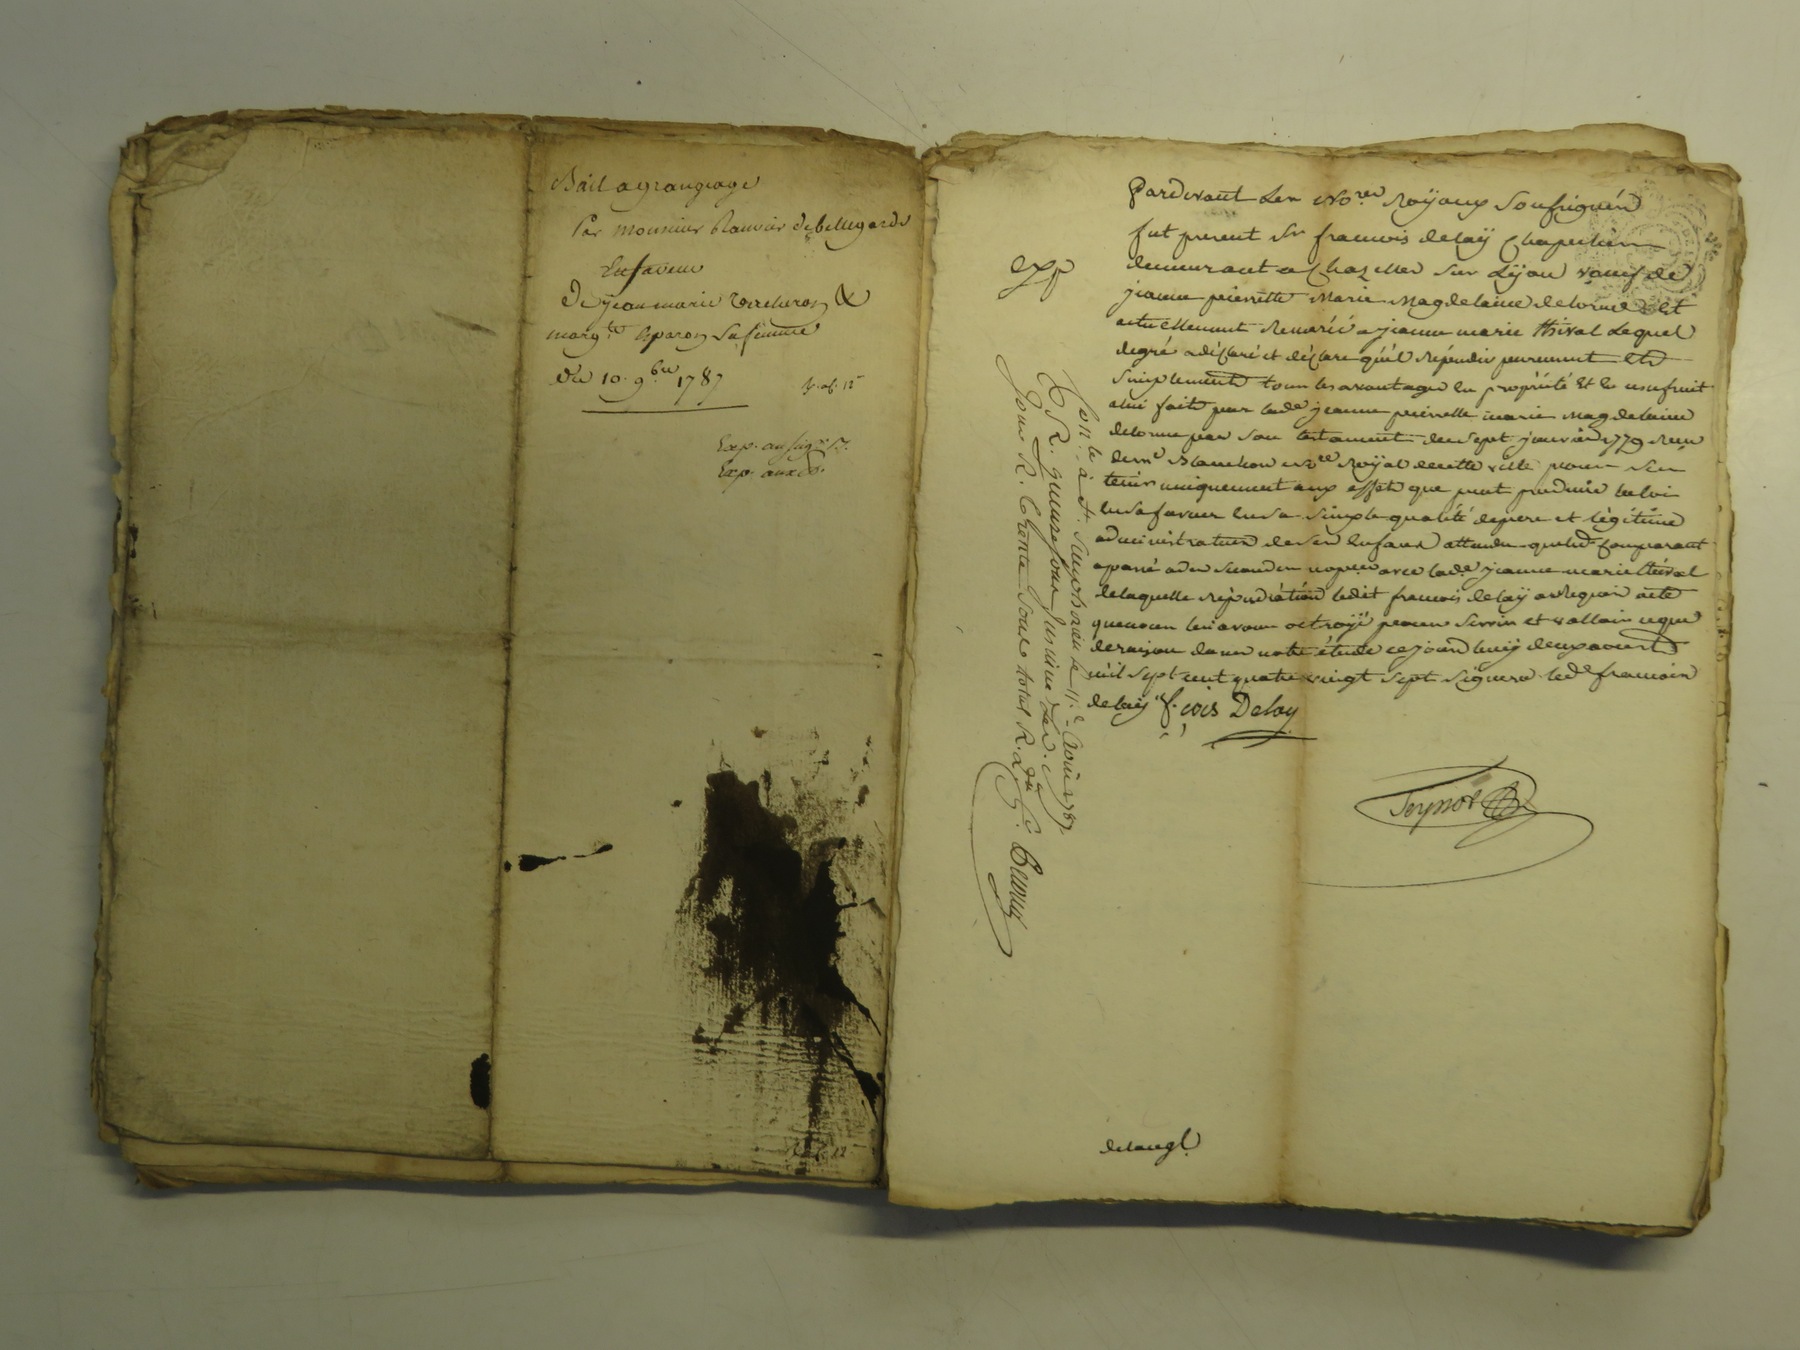 Bail a grangeage
Par Monsieur de bellegarde
En faveur
De jean marie &
marg.te sa femme
Du 10. 9.bre 1787
Exp. au sieg.r
Exp. aux d.
exp
Pardevant Les No.res Royaux Soussignés
fut present Sr francois delaÿ Chapelier
demeurant a Chazelles sur Lÿon veuf de
jeanne pierrette Marie Magdelaine delorme Et
actuellement Remarié a jeanne marie thival Lequel
degré a déclaré et déclare qu'il répudie purement Et
Simplement tous les avantages en propriété Et en usufruit
a lui fait par lade jeanne pierrette marie Magdelaine
delorme par son testament du sept janvier 1779 Reçu
de me Blanchon no.re Royal de cette ville pour s'en
tenir uniquement aux effets que peut produire la loi
en sa faveur en sa simple qualité de pere et légitime
administrateur de ses Enfans attendu que led. Comparant
a passé a de secondes nopces avec lad.e jeanne marie thival
de laquelle répudiation ledit francois delaÿ a Requis acte
que nous lui avons octroÿé pour servir et valloir ce que
de raison dans notre étude ce jourd'huy deux aoust
mil sept cent quatre vingt sept signera led francois
delaÿ f.cois Delay
Con.lé à St. le 11.e Août 1787
R. quinze sous